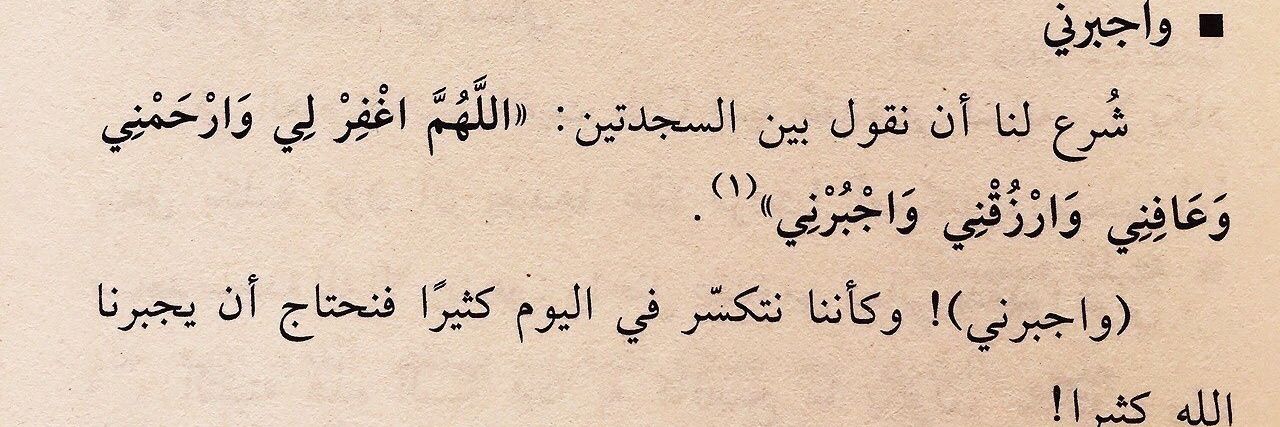 ■ واجبرني
شُرع لنا أن نقول بين السجدتين: «اللَّهُمَّ اغْفِرْ لِي وَارْحَمْنِي
وَعَافِنِي وَارْزُقْنِي وَاجْبُرْنِي»(١).
(واجبرني)! وكأننا نتكسّر في اليوم كثيرًا فنحتاج أن يجبرنا
الله كثيرا!